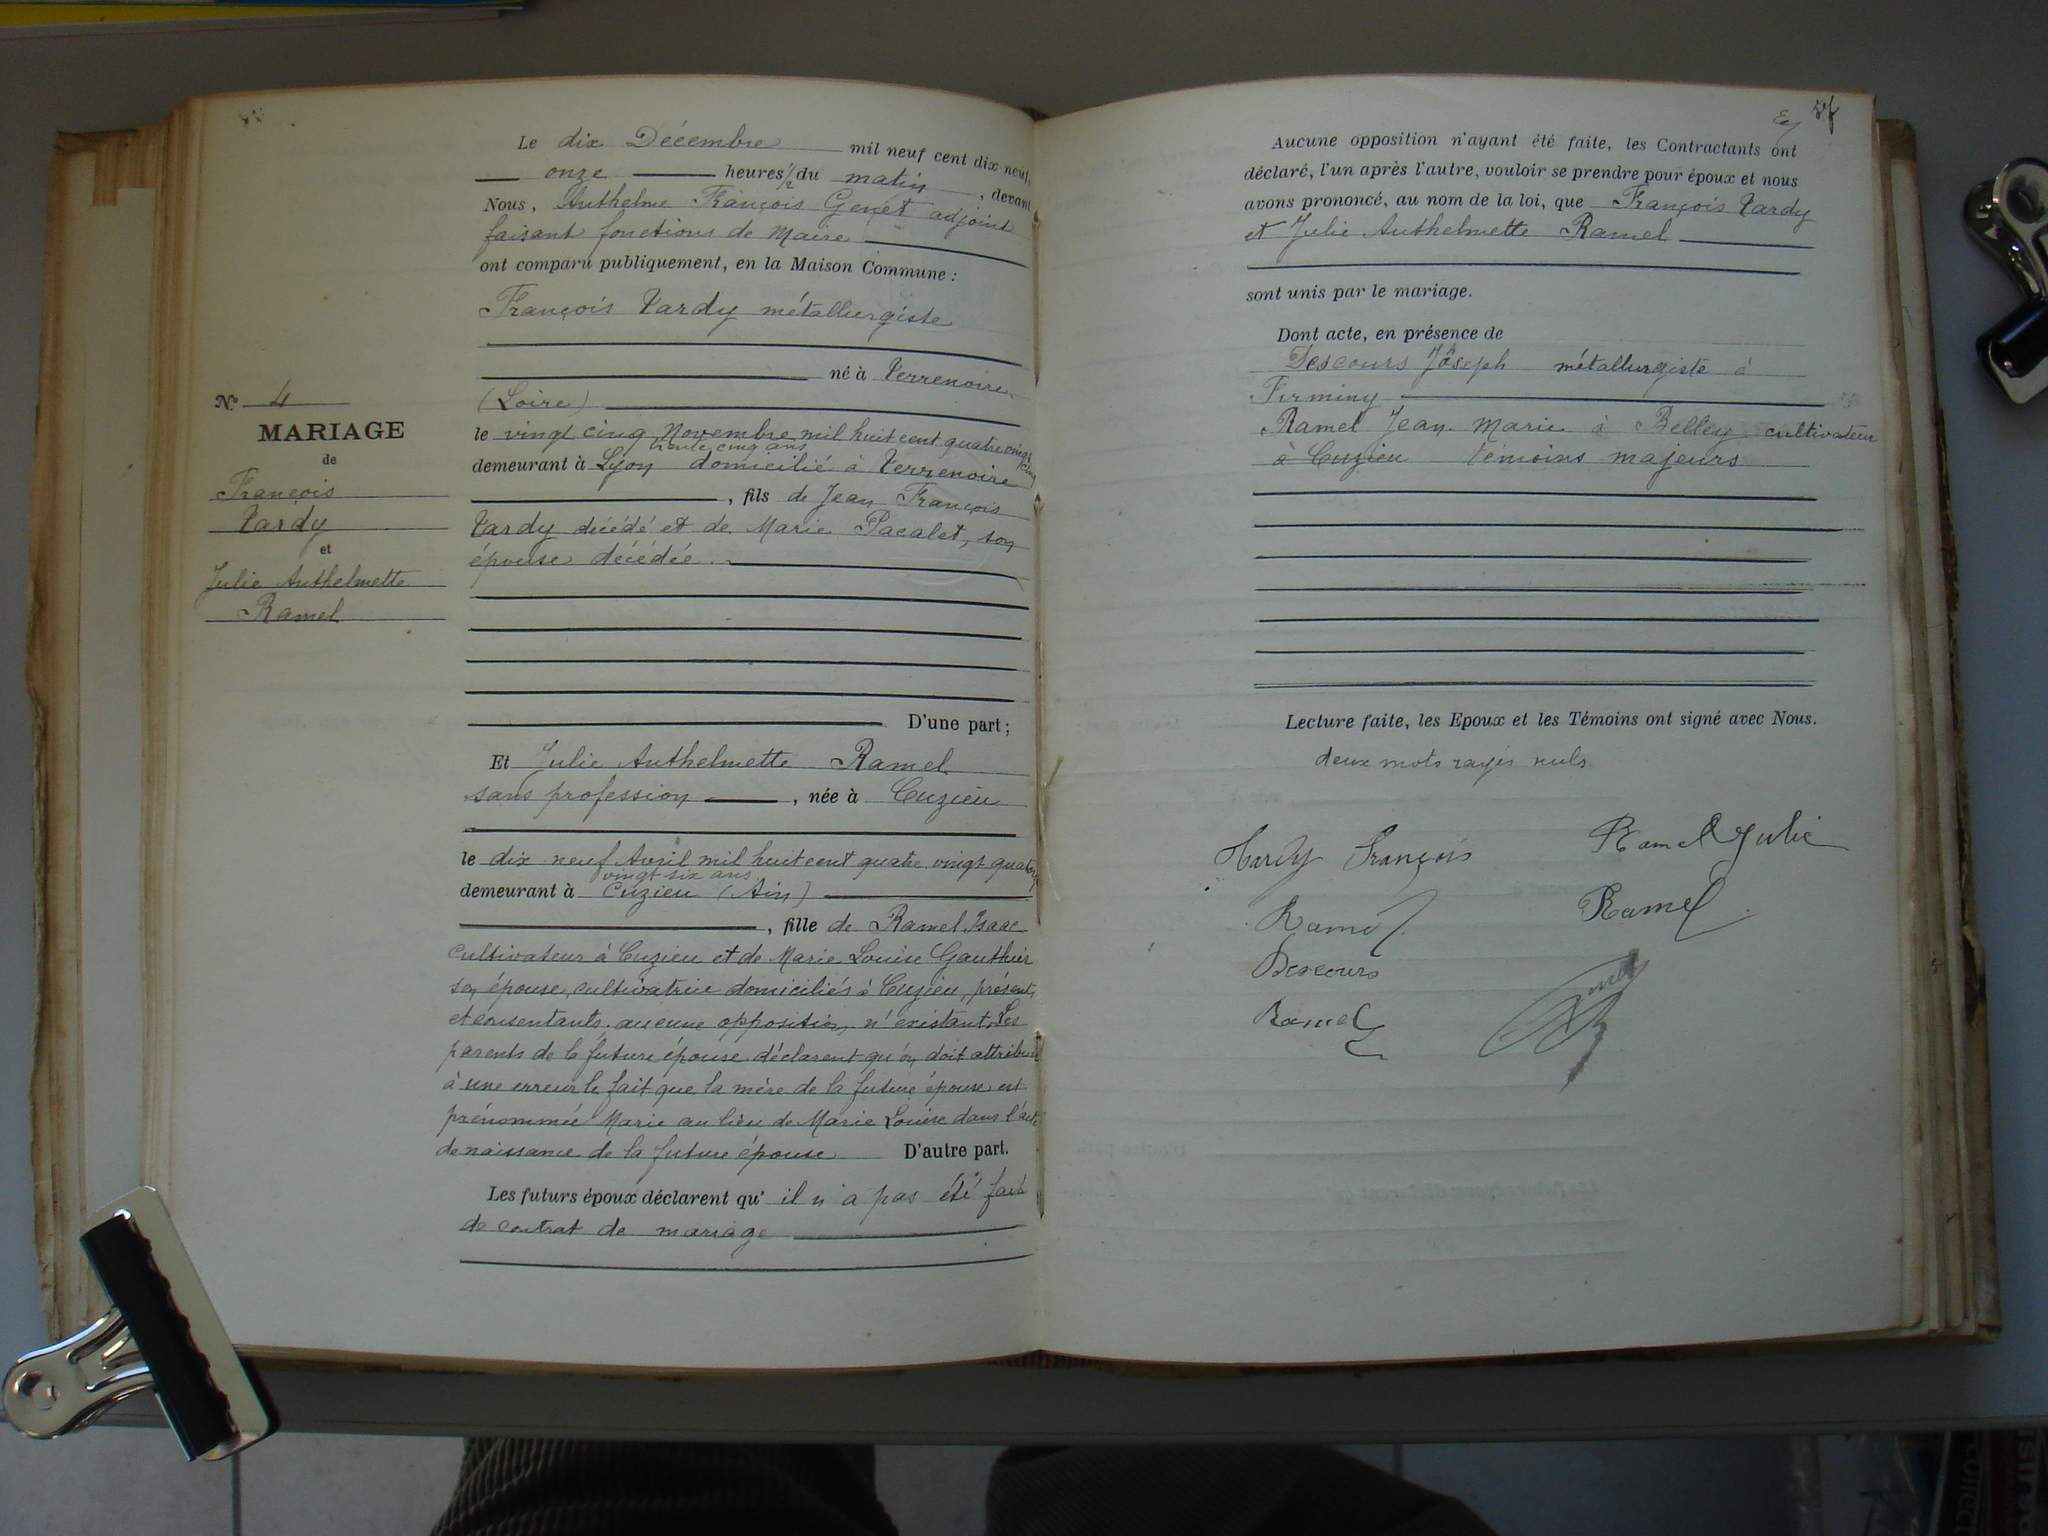 Le dix Décembre mil neuf cent dix neuf,
onze heures 1/2 du matin, devant
Nous, Anthelme François Genet adjoint
faisant fonctions de Maire
ont comparu publiquement, en la Maison Commune :
François Tardy métallurgiste
né à Terrenoire
(Loire)
le vingt cinq Novembre mil huit cent quatre vingt cinq
trente cinq ans
demeurant à Lyon domicilié à Terrenoire
, fils de Jean François
Tardy décédé et de Marie Pacalet, son
épouse décédée.
D'une part ;
N° 4
MARIAGE
de
François
Tardy
et
Julie Anthelmette
Ramel
Et Julie Anthelmette Ramel
sans profession, née à Cuzieu
le dix neuf Avril mil huit cent quatre vingt quatorze
vingt six ans
demeurant à Cuzieu (Ain)
, fille de Ramel Isaac
cultivateur à Cuzieu et de Marie Louise Gauthier
son épouse, cultivatrice domiciliés à Cuzieu, présents
et consentants. aucune opposition n'existant. Les
parents de la future épouse déclarent qu'on doit attribuer
à une erreur le fait que la mère de la future épouse est
prénommée Marie au lieu de Marie Louise dans l'acte
de naissance de la future épouse D'autre part.
Les futurs époux déclarent qu' il n'a pas été fait
de contrat de mariage
57
Aucune opposition n'ayant été faite, les Contractants ont
déclaré, l'un après l'autre, vouloir se prendre pour époux et nous
avons prononcé, au nom de la loi, que François Tardy
et Julie Anthelmette Ramel
sont unis par le mariage.
Dont acte, en présence de
Descours Joseph métallurgiste à
Firminy
Ramel Jean Marie à Belley cultivateur
à Cuzieu témoins majeurs
Lecture faite, les Epoux et les Témoins ont signé avec Nous.
deux mots rayés nuls
Tardy François Ramel Julie
Ramel Ramel
Descours
Ramel